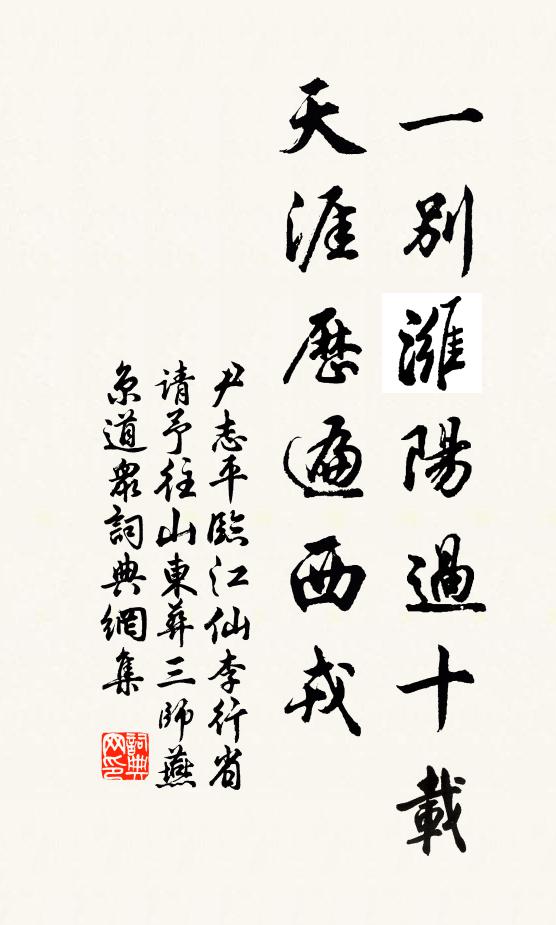 一别濰陽過十載
天涯歷遍西戎
尹志平臨江仙李行省
请予往山東葬三師燕
京道衆詞典網集
詞典网印